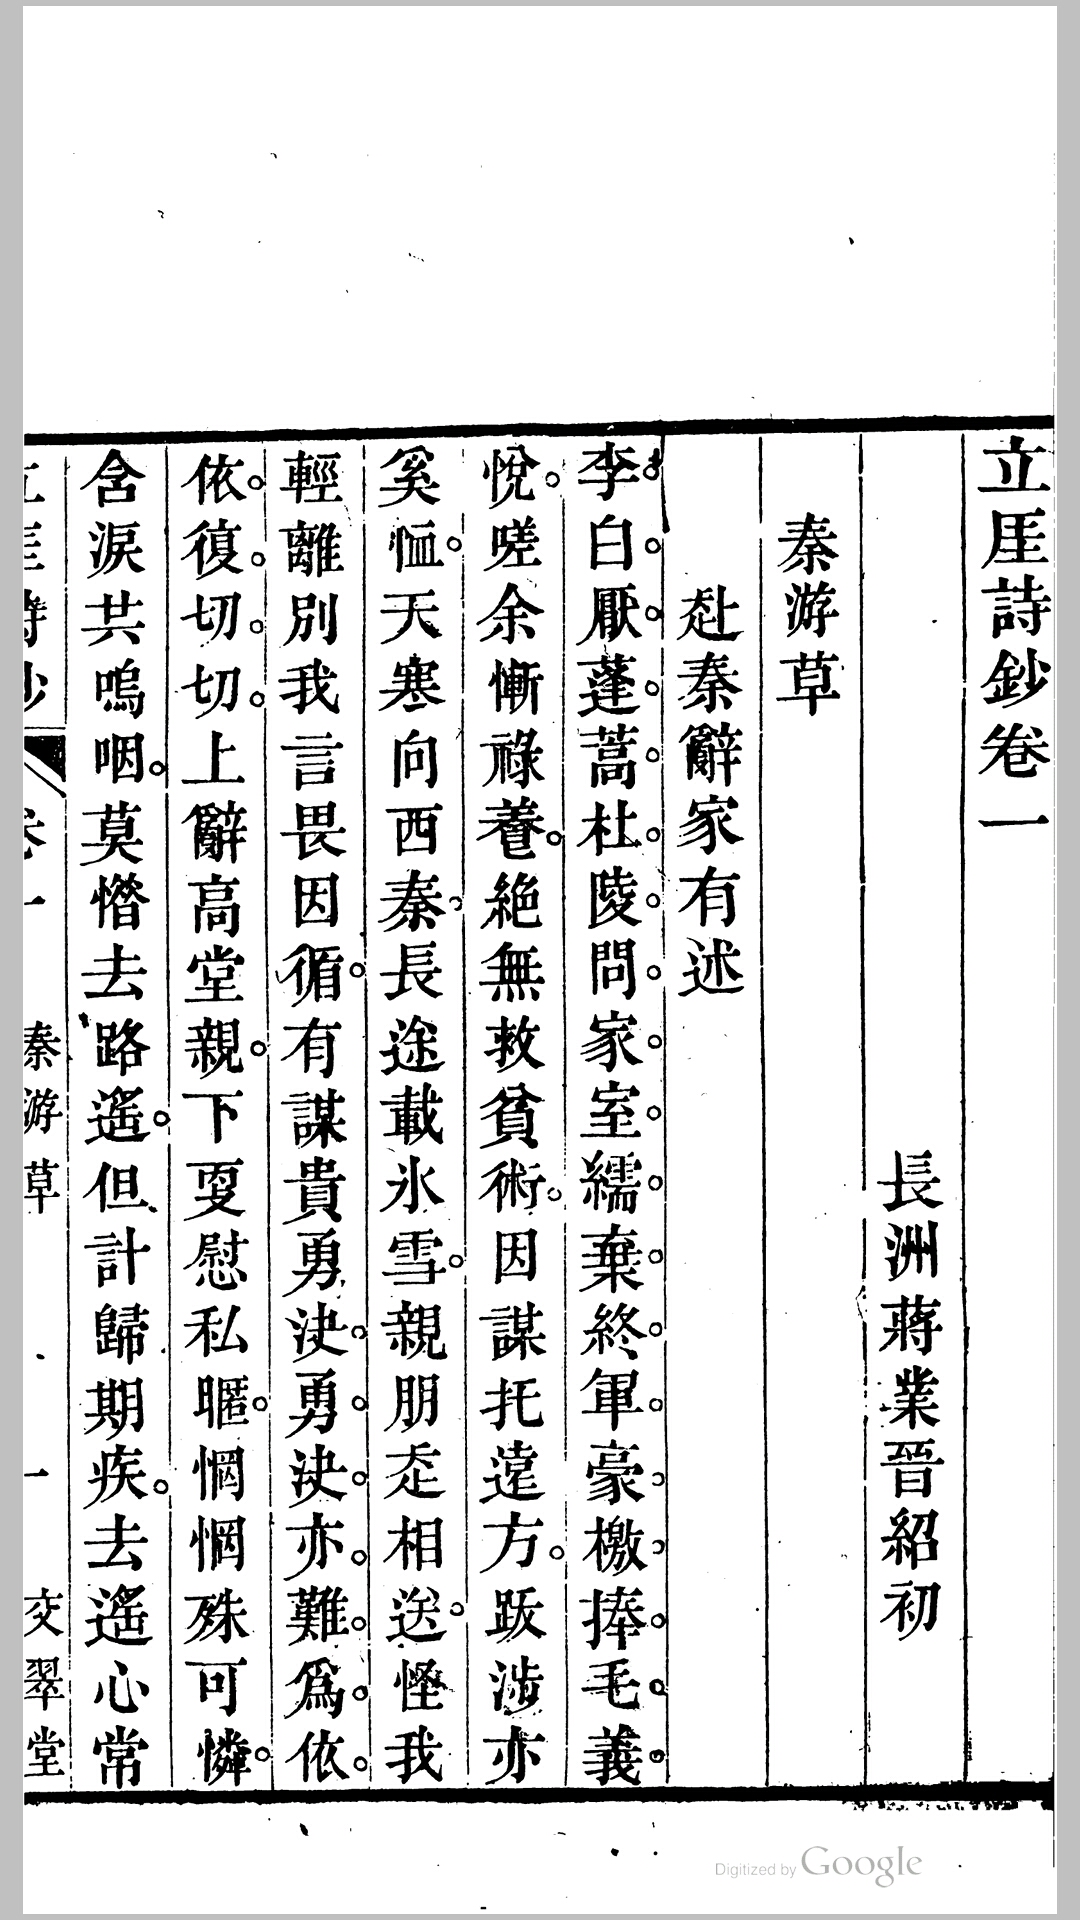 立厓詩鈔卷一
長洲蔣業晉紹初
秦游草
赴秦辭家有述
李白厭蓬蒿杜陵問家室繻棄終軍豪檄捧毛義
悅嗟余慚祿養絶無救貧術因謀托遠方跋涉亦
奚恤天寒向西秦長途載氷雪親朋走相送怪我
輕離別我言畏因循有謀貴勇決勇決亦難爲依
依復切切上辭高堂親下耎慰私暱惘惘殊可憐
含淚共嗚咽莫憯去路遙但計歸期疾去遙心常
立厓詩鈔 卷一 秦游草 一 交翠堂
Digitized by Google